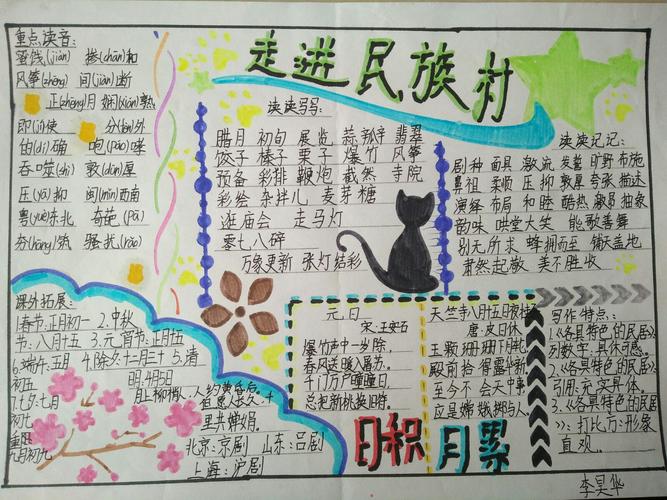 走进民族村
重点读音:
饯(jiàn) 掺(chān)和
风筝(zhēng) 间(jiàn)断
正(zhēng)月 娴(xián)熟
即(jí)使 分(fēn)外
的(dí)确 咆(páo)哮
吞噬(shì) 敦(dūn)厚
压(yā)抑 闽(mǐn)西南
粤(yuè)东北 奇葩(pā)
骚扰(rǎo)
课外拓展:
1.春节:正月初一 2.中秋
节:八月十五 3.元宵节:正月五
6.端午:五月 4.除夕:十二月三十 5.清
初五 明:4月5日
七夕:七月 月上柳梢,人约黄昏后
初七
重阳 里共婵娟。
九月初九 北京:京剧 山东:吕剧
上海:沪剧
读读写写:
腊月 初旬 展览 蒜瓣 翡翠
饺子 榛子 栗子 爆竹 风筝
预备 彩排 鞭炮 截然 寺院
彩绘 杂拌儿 麦芽糖
逛庙会 走马灯
零七八碎
万象更新 张灯结彩
读读记记:
剧种 面具 激流 发誉 旷野 布施
鼻祖 柔顺 压抑 敦厚 夸张 描述
演绎 布局 和睦 酷热 雕 抽象
韵味 哄堂大笑 能歌善舞
别无所求 蜂拥而至 铺天盖地
肃然起敬 美不胜收
元日
宋:王安石
爆竹声中一岁除,
春风送暖入屠苏。
千门万户曈曈日,
总把新桃换旧符。
天竺寺八月十五日夜桂子
唐:皮日休
玉颗珊珊下月轮,
殿前拾得露华新。
至今不会天中事,
应是嫦娥掷与人。
日积月累
写作特点:
1.《各具特色的民居》
列数字,具体可感。
2.《各具特色的民居》
引用:充实具体。
3.《各具特色的民居
》:打比方:形象
直观。
李昊华